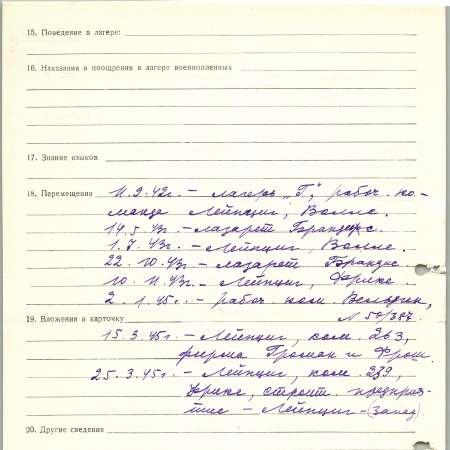 15. Поведение в лагере:
16. Наказания и поощрения в лагере военнопленных
17. Знание языков
18. Перемещения 11.9.42г. – лагерь „Г“, рабоч. ко-
манда Лейпциг, Волле.
14.5.43г. – лазарет Брандис.
1.7.43г. – Лейпциг, Волле.
22.10.43г. – лазарет Брандис
10.11.43г. – Лейпциг, Фрике.
2.1.45г. – рабоч. ком.
19. Вложения и карточку N 50/387.
15.3.45г. – Лейпциг, ком. 263,
фирма Громан и Фрош.
25.3.45г. – Лейпциг, ком. 239,
Фрике, строит. предприя-
тие – Лейпциг – (запад).
20. Другие сведения